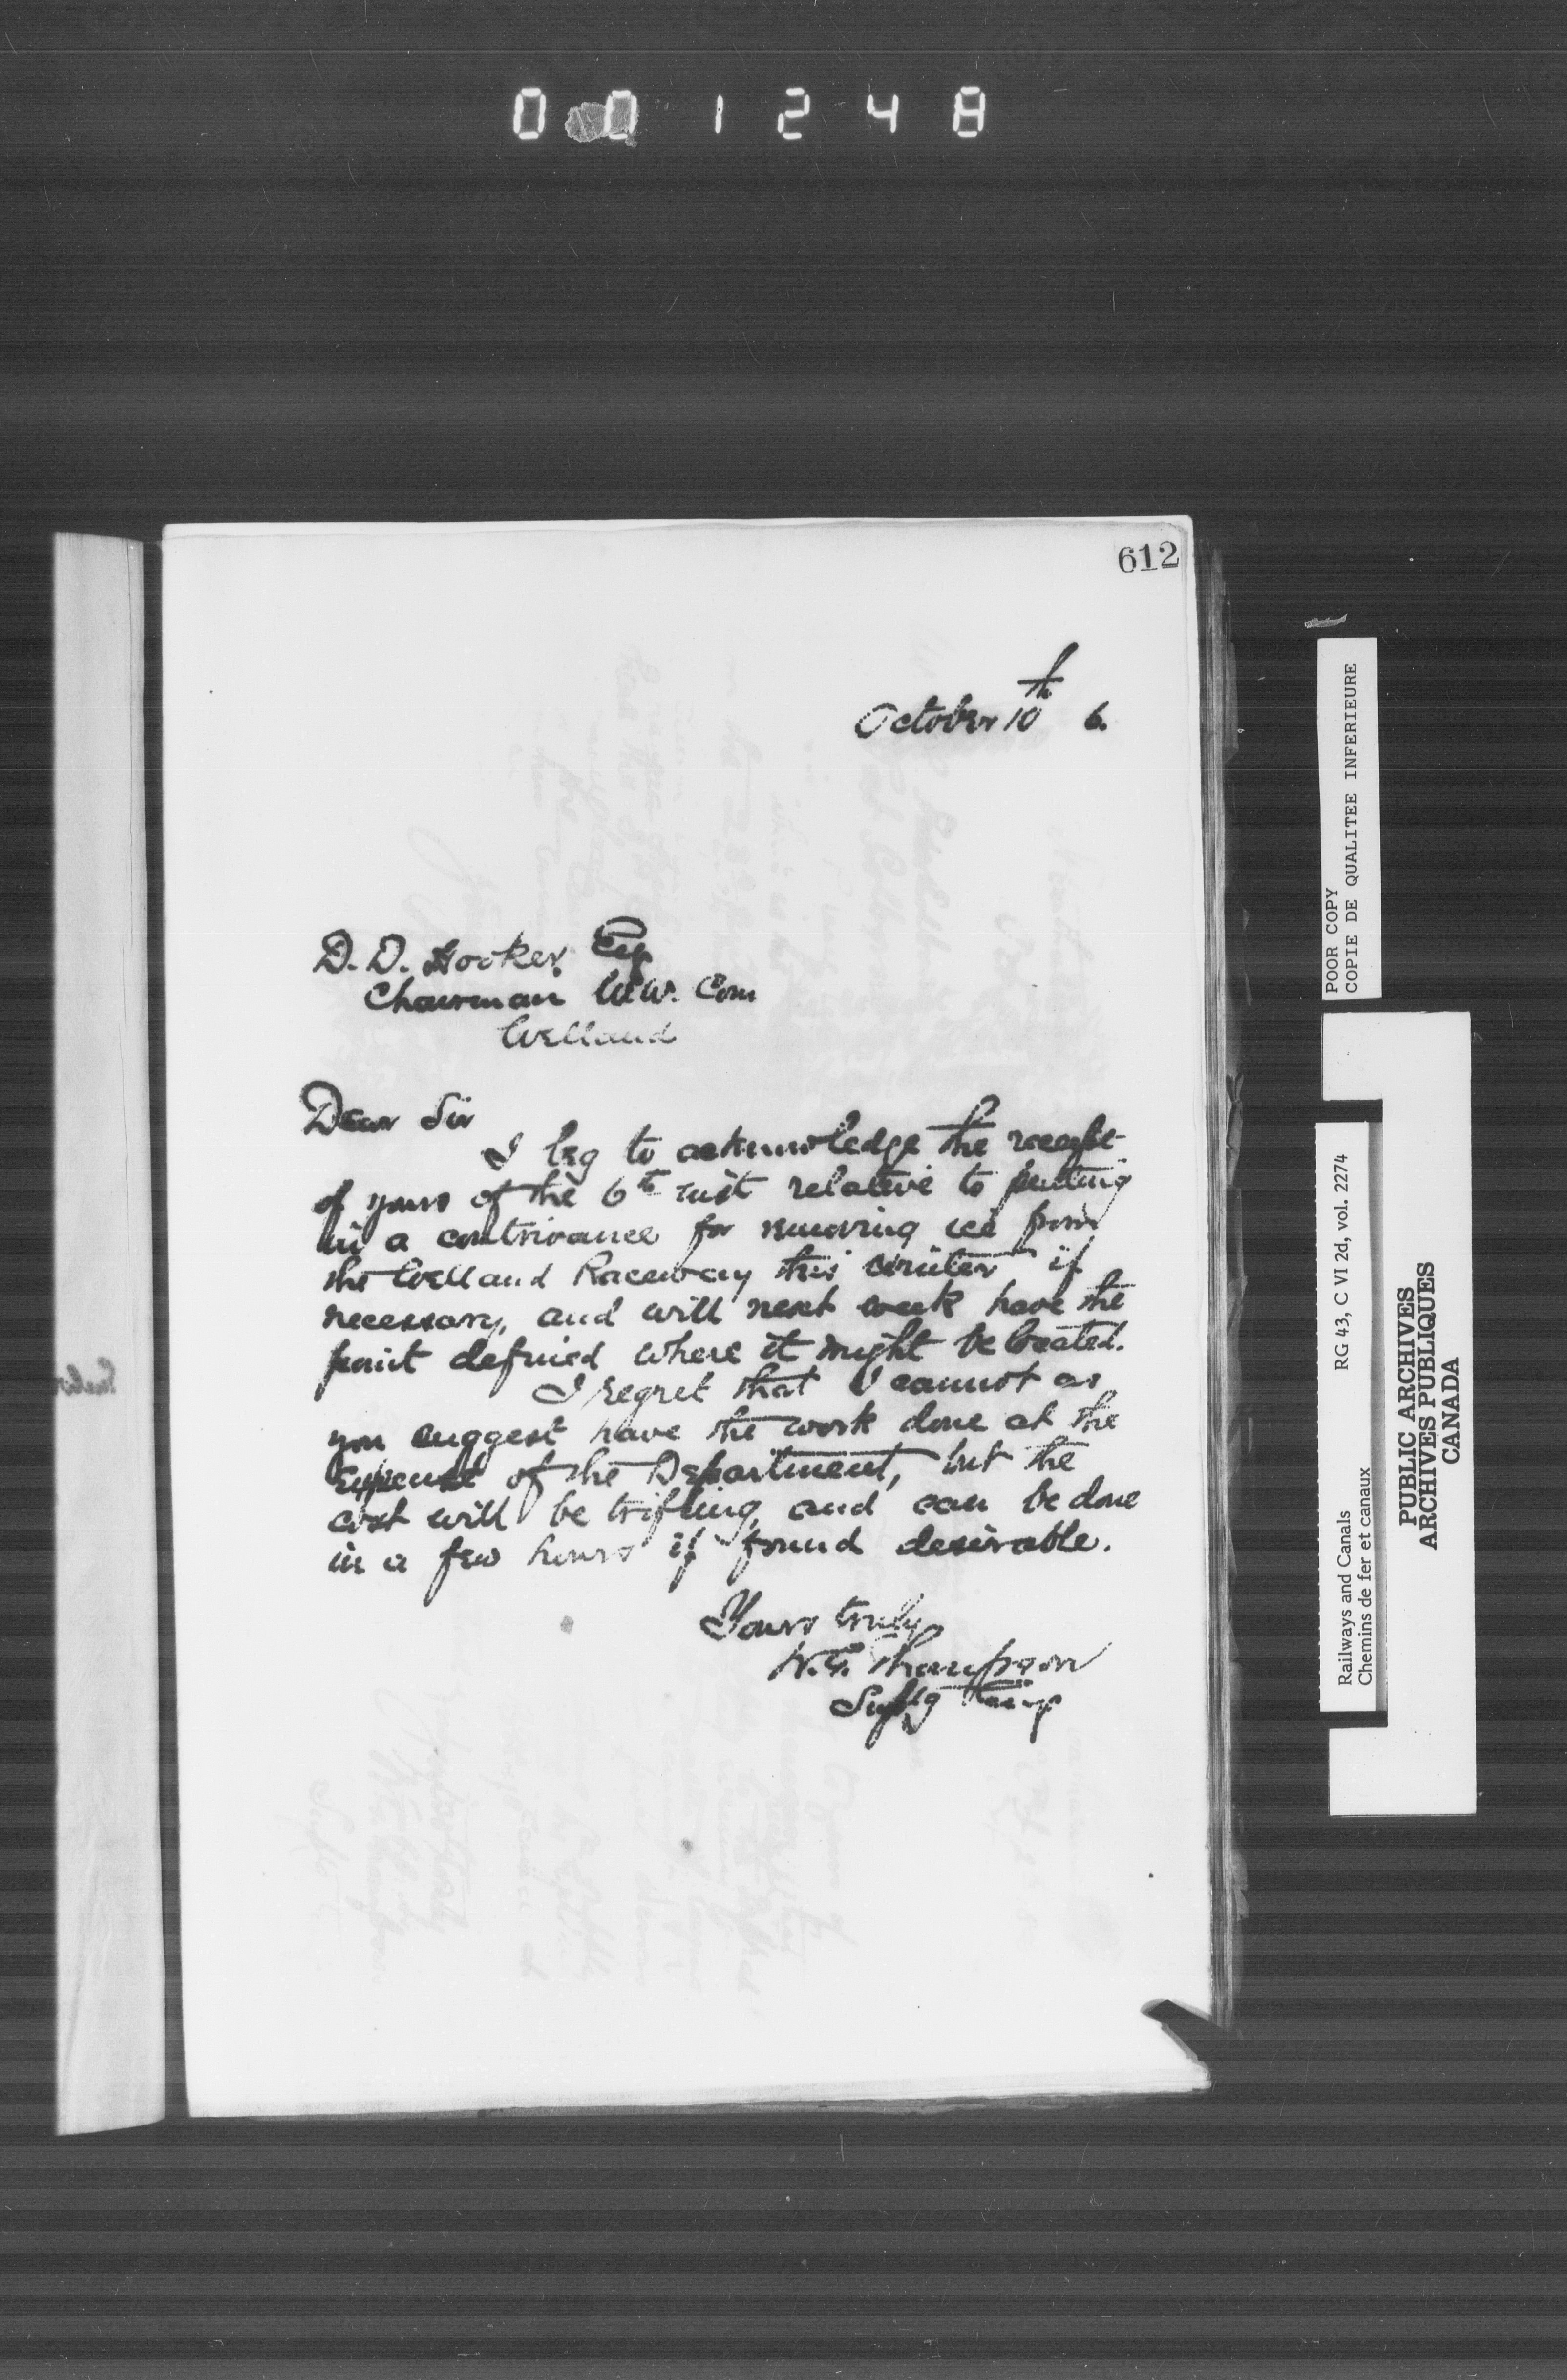 001248
612
October 10th 6.
D. D. Hooker, Esq
Chairman W.W. Com
Welland
Dear Sir
I beg to acknowledge the receipt
of yours of the 6th inst relative to putting
in a contrivance for removing ice from
the Welland Raceway this winter if
necessary, and will next week have the
point defined where it might be located.
I regret that I cannot as
you suggest have the work done at the
expense of the Department, but the
cost will be trifling, and can be done
in a few hours if found desirable.
Yours truly
W.G. Thompson
Suptg Eng
POOR COPY
COPIE DE QUALITEE INFERIEURE
Railways and Canals RG 43, C VI 2d, vol. 2274
Chemins de fer et canaux
PUBLIC ARCHIVES
ARCHIVES PUBLIQUES
CANADA